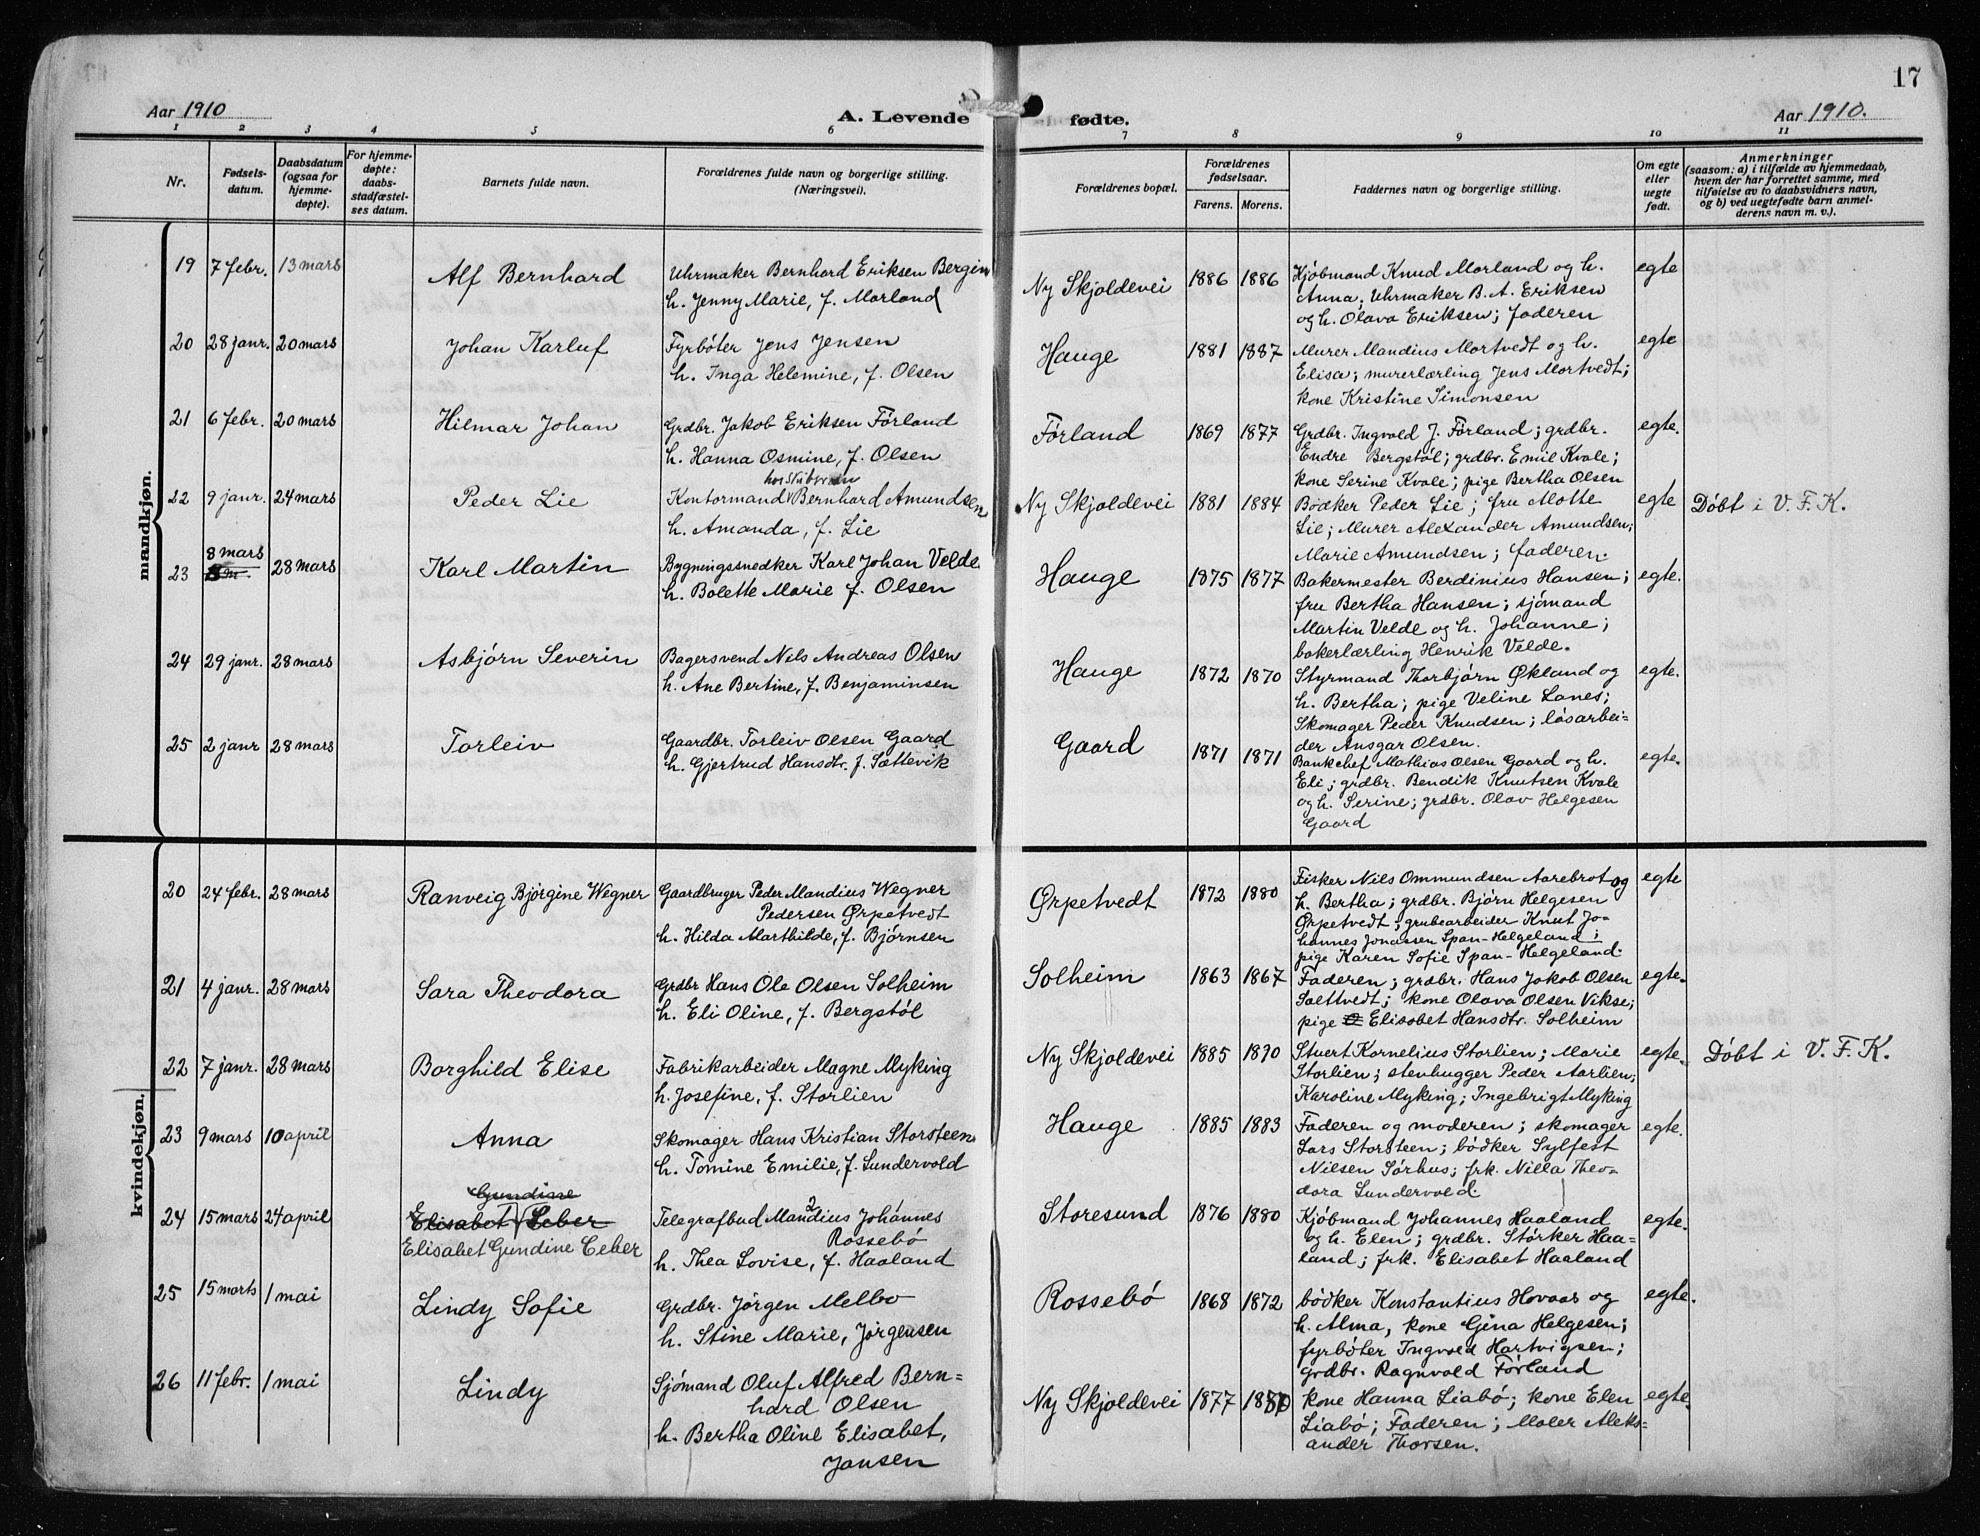 17
Aar 1910
A. Levende fødte.
Aar 1910.
1 2 3 4 5 6 7 8 9 10 11
Nr.
Fødsels-
datum.
Daabsdatum
(ogsaa for
hjemme-
døpte).
For hjemme-
døpte:
daabs-
stadfæstel-
ses datum.
Barnets fulde navn.
Forældrenes fulde navn og borgerlige stilling.
(Næringsvei).
Forældrenes bopæl.
Forældrenes
fødselsaar.
Farens. Morens.
Faddernes navn og borgerlige stilling.
Om egte
eller
uegte
født.
Anmerkninger
(saasom: a) i tilfælde av hjemmedaab,
hvem der har forrettet samme, med
tilføielse av to daabsvidners navn,
og b) ved uegtefødte barn anmel-
derens navn m. v.).
mandkjøn.
19 7 febr. 13 mars Alf Bernhard
Uhrmaker Bernhard Eriksen
h. Jenny Marie, f. Morland
Ny Skjoldevei 1886 1886
Kjöbmand Knud Morland og h.
Anna; Uhrmaker B. A. Eriksen
og h. Olava Eriksen; faderen
egte
20 28 janr. 20 mars Johan Karluf
Fyrböter Jens Jensen
h. Inga Helemine, f. Olsen
Hauge 1881 1887
Murer Mandius Mortvedt og h.
Elisa; murerlærling Jens Mortvedt;
kone Kristine Simonsen
egte
21 6 febr. 20 mars Hilmar Johan
Grdbr. Jakob Eriksen Förland
h. Hanna Osmine, f. Olsen
Förland 1869 1877
Grdbr. Ingvald J. Förland; grdbr.
Endre Bergstöl; grdbr. Emil Kvale;
kone Serine Kvale; pige Bertha Olsen
egte.
22 9 janr. 24 mars Peder Lie
Kontormand Bernhard Amundsen
h. Amanda, f. Lie
Ny Skjoldevei 1881 1884
Bödker Peder Lie; fru Motte
Lie; Murer Alexander Amundsen;
Marie Amundsen; faderen.
egte
Döbt i V. F. K.
23 8 mars 28 mars Karl Martin
Bygningssnedker Karl Johan Velde
h. Bolette Marie f. Olsen
Hauge 1875 1877
Bakermester Berdinius Hansen;
fru Bertha Hansen; sjömand
Martin Velde og h. Johanne;
bakerlærling Henrik Velde.
egte.
24 29 janr. 28 mars Asbjørn Severin
Bagersvend Nils Andreas Olsen
h. Ane Bertine, f. Benjaminsen
Hauge 1872 1870
Styrmand Thorbjørn Økland og
h. Bertha; pige Veline Lanes;
Skomager Peder Knudsen; lösarbei-
der Ansgar Olsen.
egte.
25 2 janr 28 mars Torleiv
Gaardbr. Torleiv Olsen Gaard
h. Gjertrud Hansdtr. f. Sættevik
Gaard 1871 1871
Bankchef Mathias Olsen Gaard og h.
Eli; grdbr. Bendik Knutsen Kvale
og h. Serine; grdbr. Olav Helgesen
Gaard
egte.
kvindekjøn.
20 24 febr. 28 mars Ranveig Bjørgine Wegner
Gaardbruger Peder Mandius Wegner
Pedersen Ørpetvedt
h. Hilda Marthilde, f. Bjørnsen
Ørpetvedt 1872 1880
Fisker Nils Ommundsen Aarebrot og
h. Bertha; grdbr. Bjørn Helgesen
Ørpetvedt; grubearbeider Knut Jo-
hannes Jonassen Span-Helgeland;
pige Karen Sofie Span-Helgeland.
egte
21 4 janr. 28 mars Sara Theodora
Grdbr Hans Ole Olsen Solheim
h. Eli Oline, f. Bergstöl
Solheim 1863 1867
Faderen; grdbr. Hans Jakob Olsen
Sættvedt; kone Olava Olsen Vikse;
pige Elisabet Hansdtr. Solheim
egte.
22 7 janr. 28 mars Borghild Elise
Fabrikarbeider Magne Myking
h. Josefine, f. Storlien
Ny Skjoldevei 1885
Stuert Kornelius Storlien; Marie
Storlien; stenhugger Peder Aarlien;
Karoline Myking; Ingebrigt Myking
egte.
Döbt i V. F. K.
23 9 mars 10 april Anna
Skomager Hans Kristian Storsteen
h. Tomine Emilie, f. Lundervold
Hauge 1885 1883
Faderen og moderen; skomager
Lars Storsteen; bödker Sylfest
Nilsen Sörhus; frk. Nilla Theo-
dora Lundervold.
egte.
24 15 mars 24 april
Gundine
Elisabet Ceber
Elisabet Gundine Ceber
Telegrafbud Mandius Johannes
Rossebö
h. Thea Lovise, f. Haaland
Storesund 1876 1880
Kjöbmand Johannes Haaland
og h. Elen; grdbr. Störker Haa-
land; frk. Elisabet Haaland
egte.
25 15 marts 1 mai Lindy Sofie
Grdbr. Jörgen Melbo
h. Stine Marie, Jørgensen
Rossebö 1868 1872
bödker Konstantius Hovaas og
h. Alma, kone Gina Helgesen;
fyrböter Ingvald Hartvigsen;
grdbr. Ragnvald Förland
egte.
26 11 febr. 1 mai Lindy
Sjömand Oluf Alfred Bern=
hard Olsen
h. Bertha Oline Elisabet,
Jansen
Ny Skjoldevei 1877
kone Hanna Liabö; kone Elen
Liabö; Faderen; Maler Aleks-
ander Thorsen.
egte.